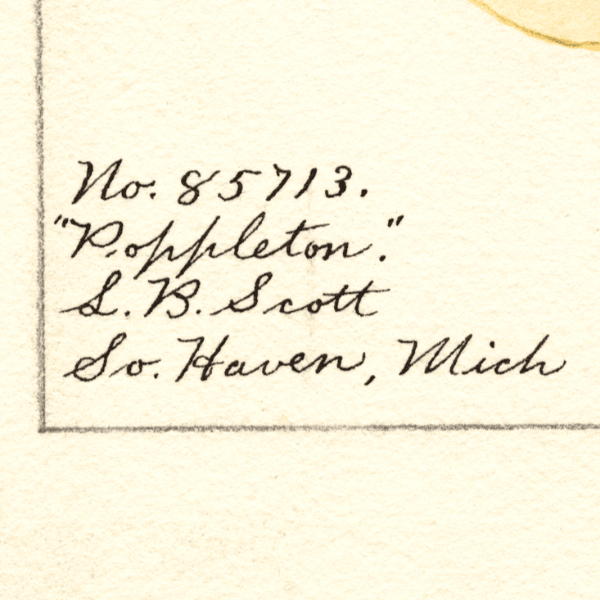 No. 85713.
"Poppleton."
L. B. Scott
So. Haven, Mich